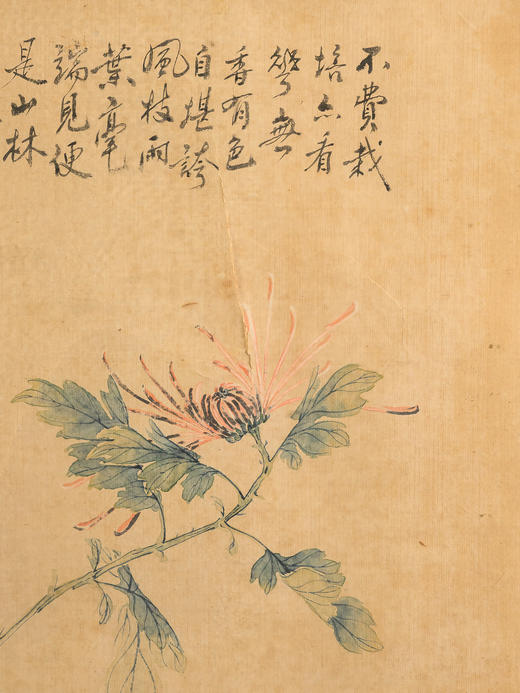 不費栽
培亦看
華無
香有色
自堪誇
風枝雨
葉毫
端見便
是山林